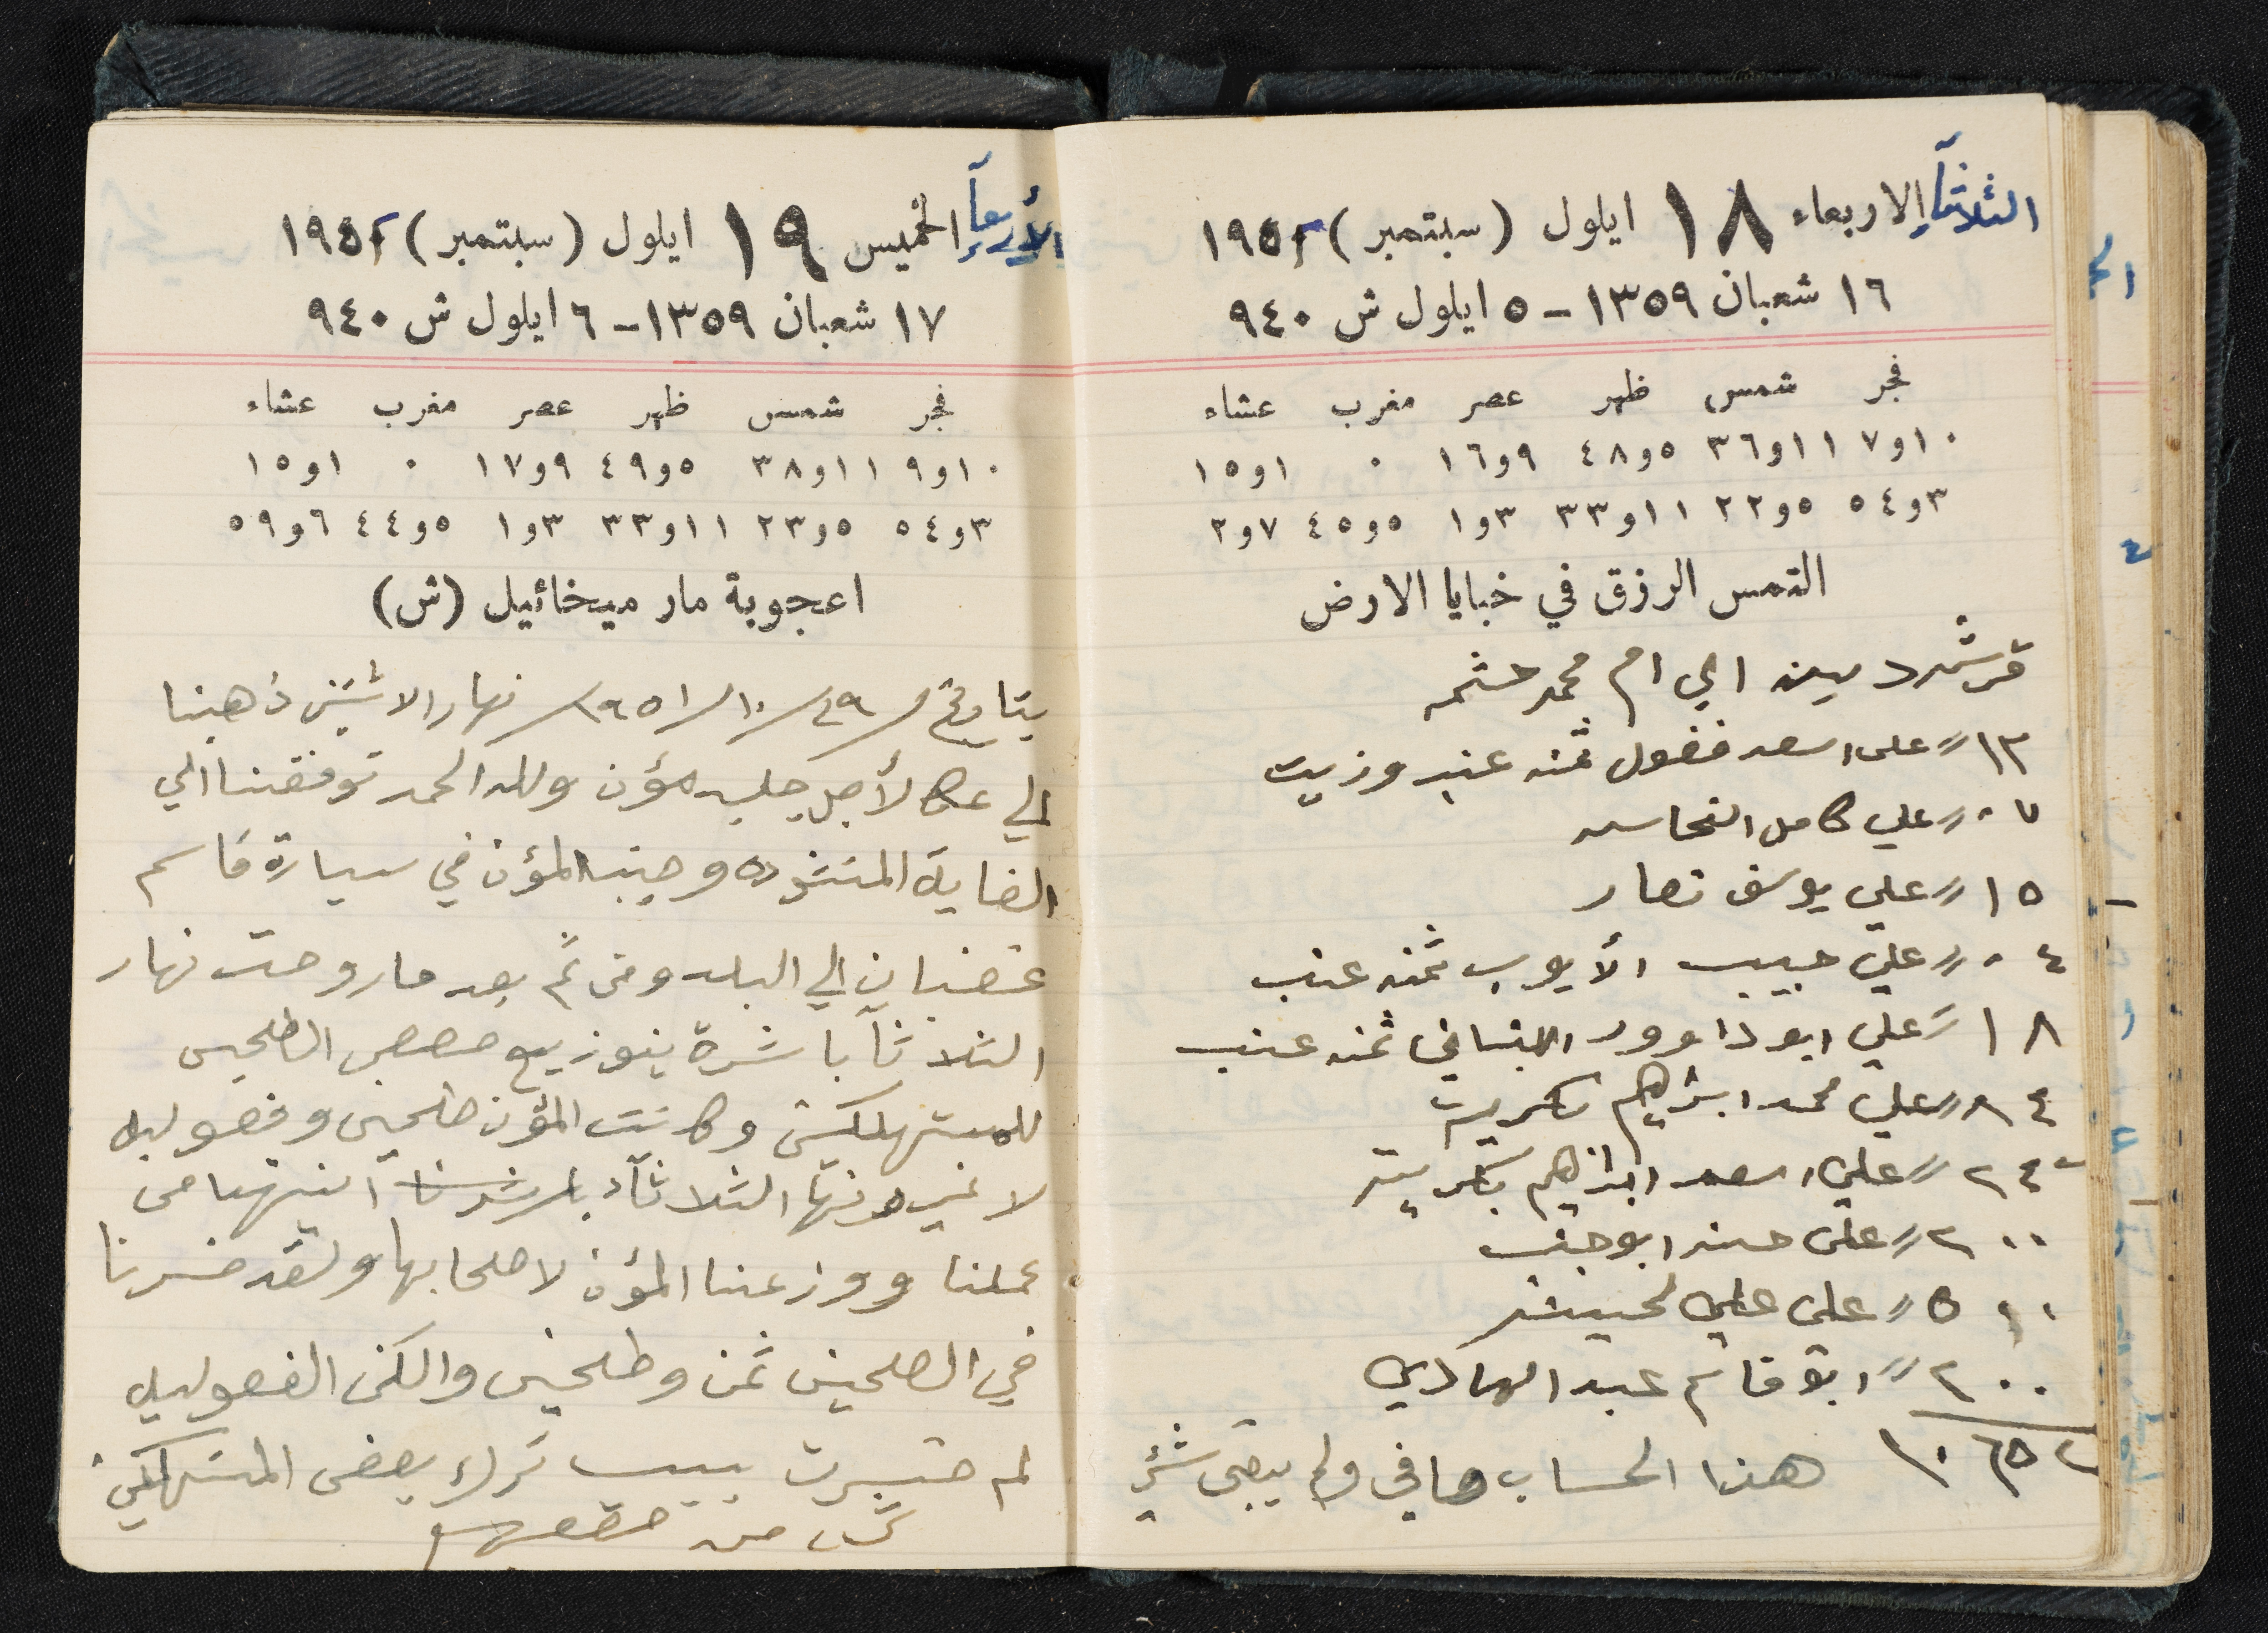 الثلاثآ الاربعاء ١٨ ايلول (سبتمبر) ١٩٥١
١٦ شعبان ١٣٥٩ – ٥ ايلول ش ٩٤٠
فجر شمس ظهر عصر مغرب عشاء
١٠و٧ ١١و٣٦ ٥و٤٨ ٩و١٦ ٠ ١و١٥
٣و٥٤ ٥و٢٢ ١١و٣٣ ٣و١ ٥و٤٥ ٧و٢
التمس الرزق في خبايا الارض
قرش دين الي ام محمد حشمه
١٣ // على اسعد فضول ثمنه عنب وزيت
٠٧ // علي كامل النحاسه
١٥ // علي يوسف نصار
٠٤ // علي حبيب الأيوب ثمنه عنب
١٨ // علي ابو داوود اللبناني ثمنه عنب
٨٤ // علي محمد ابراهيم تكريت
// علي اسعد ابراهيم تكريت
٢٠٠ // على حسن ابو جنب
// على علي
٢٠٠ // ابو قاسم عبد الهادي
هذا الحساب صافي ولم يبقى شئ
الأربعآ الخميس ١٩ ايلول (سبتمبر) ١٩٥١
١٧ شعبان ١٣٥٩ – ٦ ايلول ش ٩٤٠
فجر شمس ظهر عصر مغرب عشاء
١٠و٩ ١١و٣٨ ٥و٤٩ ٩و١٧ ٠ ١و١٥
٣و٥٤ ٥و٢٣ ١١و٣٣ ٣و١ ٥و٤٤ ٦و٥٩
اعجوبة مار ميخائيل (ش)
بتاريخ ٢٩/١٠/١٩٥١ نهار الاثنين ذهبنا
الي عكا لأجل جلب مؤن ولله الحمد توفقنا الي
الغاية المنشوده وجبنا المؤن في سيارة قاسم
غضبان الي البلد ومن ثم بعد ما روحت نهار
الثلاثآ باشرة بتوزيع حصص الطحين
للمستهلكين وكانت المؤن طحين وفصوليه
لا غير ونهار الثلاثآء باشرنا انتهينا من
عملنا ووزعنا المؤن لاصحابها ولقد خسرنا
في الطحين ثمن وطلحين والكن الفصوليه
لم خسرت بسبب ترك بعض المستهلكين
من حقهم